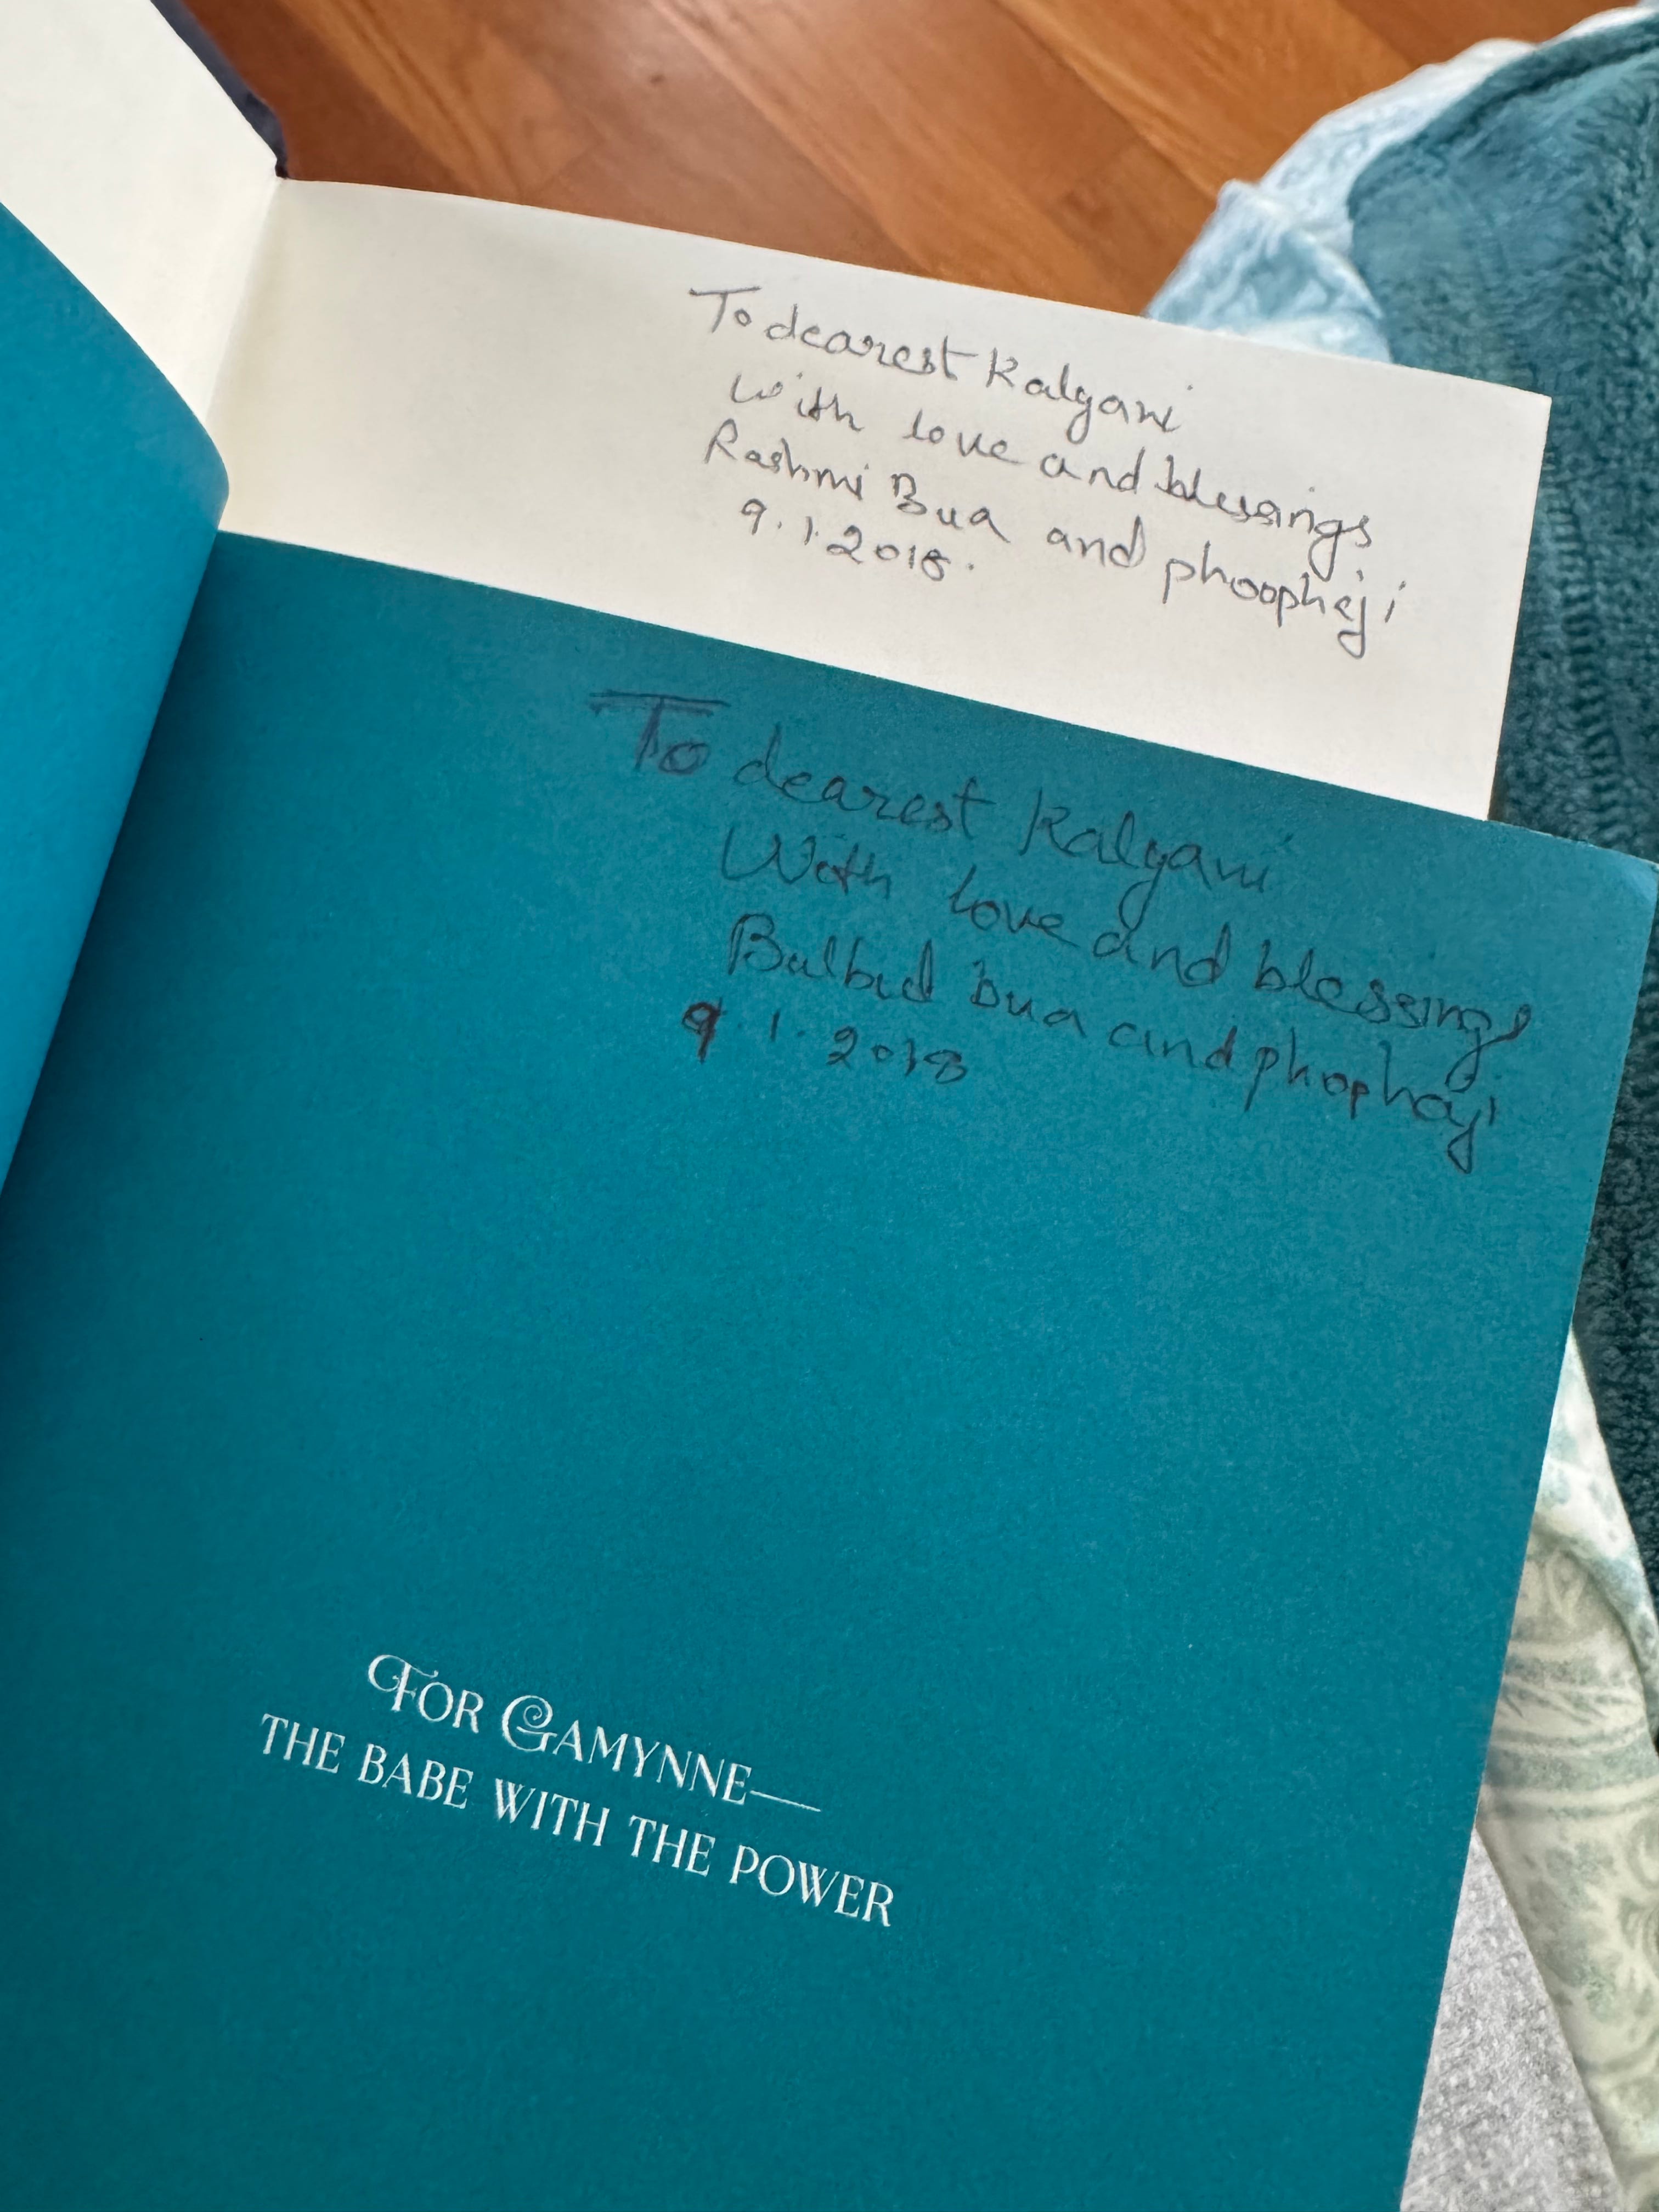 To dearest Kalyani
With love and blessings
Rashmi Bua and phoophaji
9.1.2018.
To dearest Kalyani
With love and blessings
Bulbul bua and phophaji
9.1.2018
FOR GAMYNNE—
THE BABE WITH THE POWER